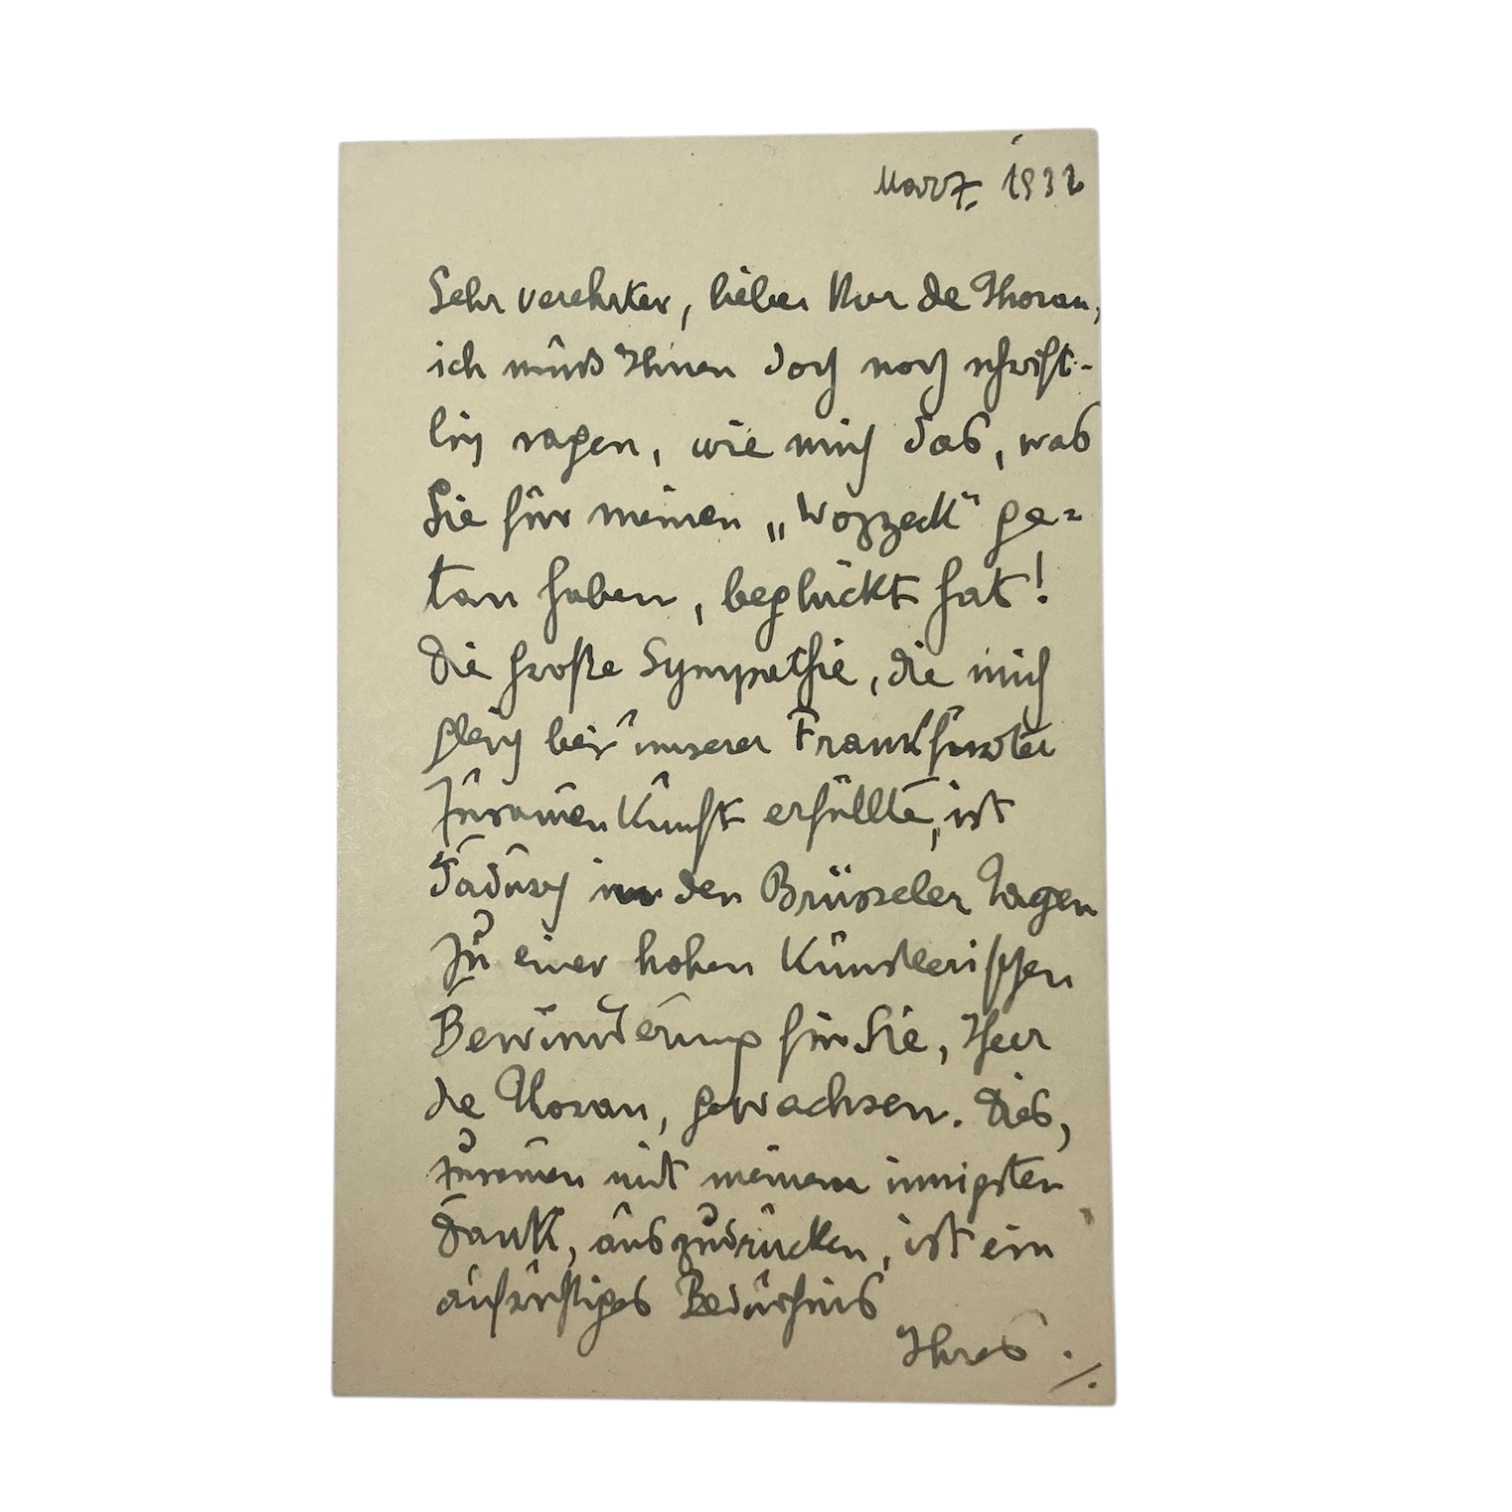 März 1932
Sehr verehrter, lieber Herr de Thoran,
ich muß Ihnen doch noch schrift-
lich sagen, wie mich das, was
Sie für meinen „Wozzeck" ge=
tan haben, beglückt hat!
Die große Sympathie, die mich
gleich bei unserer Frankfurter
Zusam̄enkunft erfüllte, ist
dadurch in den Brüsseler Tagen
zu einer hohen künstlerischen
Bewunderung für Sie, Herr
de Thoran, gewachsen. Dies,
zusam̄en mit meinem innigsten
Dank, auszudrücken, ist ein
aufrichtiges Bedürfnis
Ihres ./.